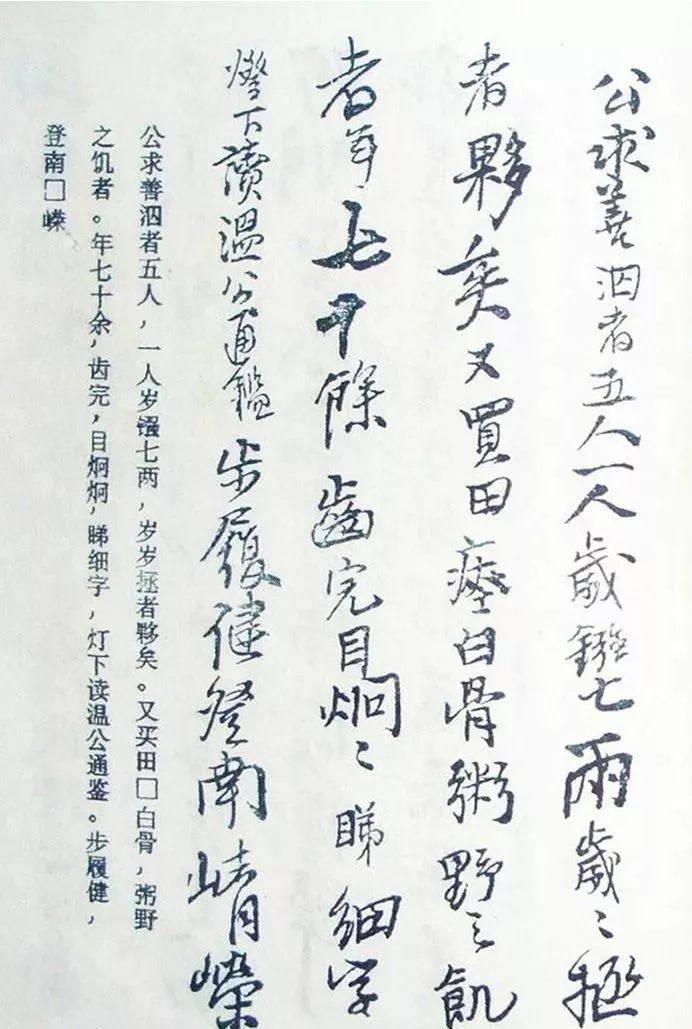 公求善泗者五人一人歲鏹七兩歲〻拯
者夥矣又買田瘞白骨粥野之飢
者年七十餘齒完目炯〻睇細字
燈下讀溫公通鑑步履健登南崝嶸
公求善泗者五人，一人岁镪七两，岁岁拯者夥矣。又买田□白骨，粥野
之饥者。年七十余，齿完，目炯炯，睇细字，灯下读温公通鉴。步履健，
登南□嵘